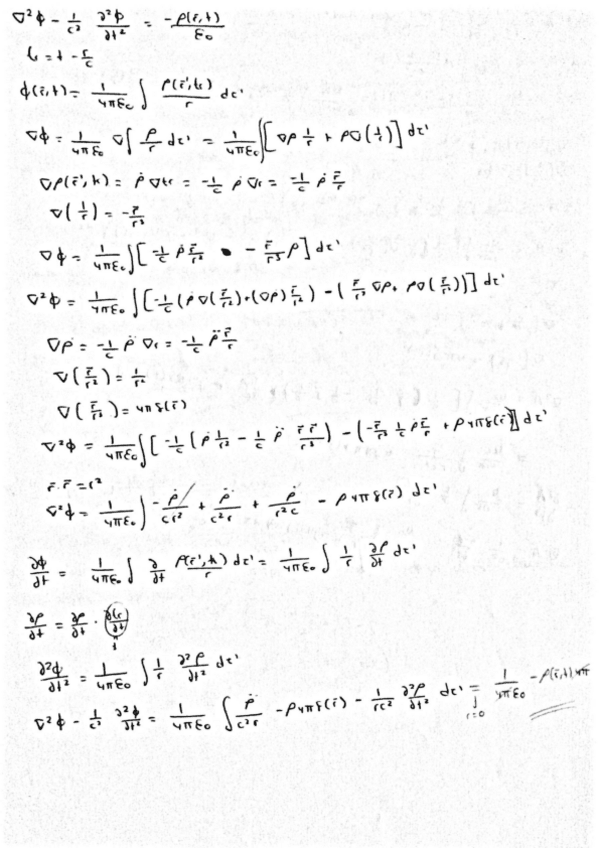 ∇²ϕ - 1/c² ∂²ϕ/∂t² = -ρ(r̄,t)/ε₀
tᵣ = t - r/c
ϕ(r̄,t) = 1/4πε₀ ∫ ρ(r̄',tᵣ)/r dτ'
∇ϕ = 1/4πε₀ ∇∫ ρ/r dτ' = 1/4πε₀ ∫[∇ρ 1/r + ρ∇(1/r)] dτ'
∇ρ(r̄',tᵣ) = ρ̇ ∇tᵣ = -1/c ρ̇ ∇r = -1/c ρ̇ r̄/r
∇(1/r) = -r̄/r³
∇ϕ = 1/4πε₀ ∫[-1/c ρ̇ r̄/r² - r̄/r³ ρ] dτ'
∇²ϕ = 1/4πε₀ ∫[-1/c (ρ̇ ∇(r̄/r²) + (∇ρ̇) r̄/r²) - (r̄/r³ ∇ρ + ρ∇(r̄/r³))] dτ'
∇ρ̇ = -1/c ρ̈ ∇r = -1/c ρ̈ r̄/r
∇(r̄/r²) = 1/r²
∇(r̄/r³) = 4πδ(r̄)
∇²ϕ = 1/4πε₀ ∫[-1/c (ρ̇ 1/r² - 1/c ρ̈ r̄·r̄/r³) - (-r̄/r³ 1/c ρ̇ r̄/r + ρ4πδ(r̄))] dτ'
r̄·r̄ = r²
∇²ϕ = 1/4πε₀ ∫ -ρ̇/cr² + ρ̈/c²r + ρ̇/r²c - ρ4πδ(r̄) dτ'
∂ϕ/∂t = 1/4πε₀ ∫ ∂/∂t ρ(r̄',tᵣ)/r dτ' = 1/4πε₀ ∫ 1/r ∂ρ/∂t dτ'
∂ρ/∂t = ∂ρ/∂t · ∂tᵣ/∂t
1
∂²ϕ/∂t² = 1/4πε₀ ∫ 1/r ∂²ρ/∂t² dτ'
∇²ϕ - 1/c² ∂²ϕ/∂t² = 1/4πε₀ ∫ ρ̈/c²r - ρ4πδ(r̄) - 1/rc² ∂²ρ/∂t² dτ' = 1/4πε₀ -ρ(r̄,t)4π
r=0